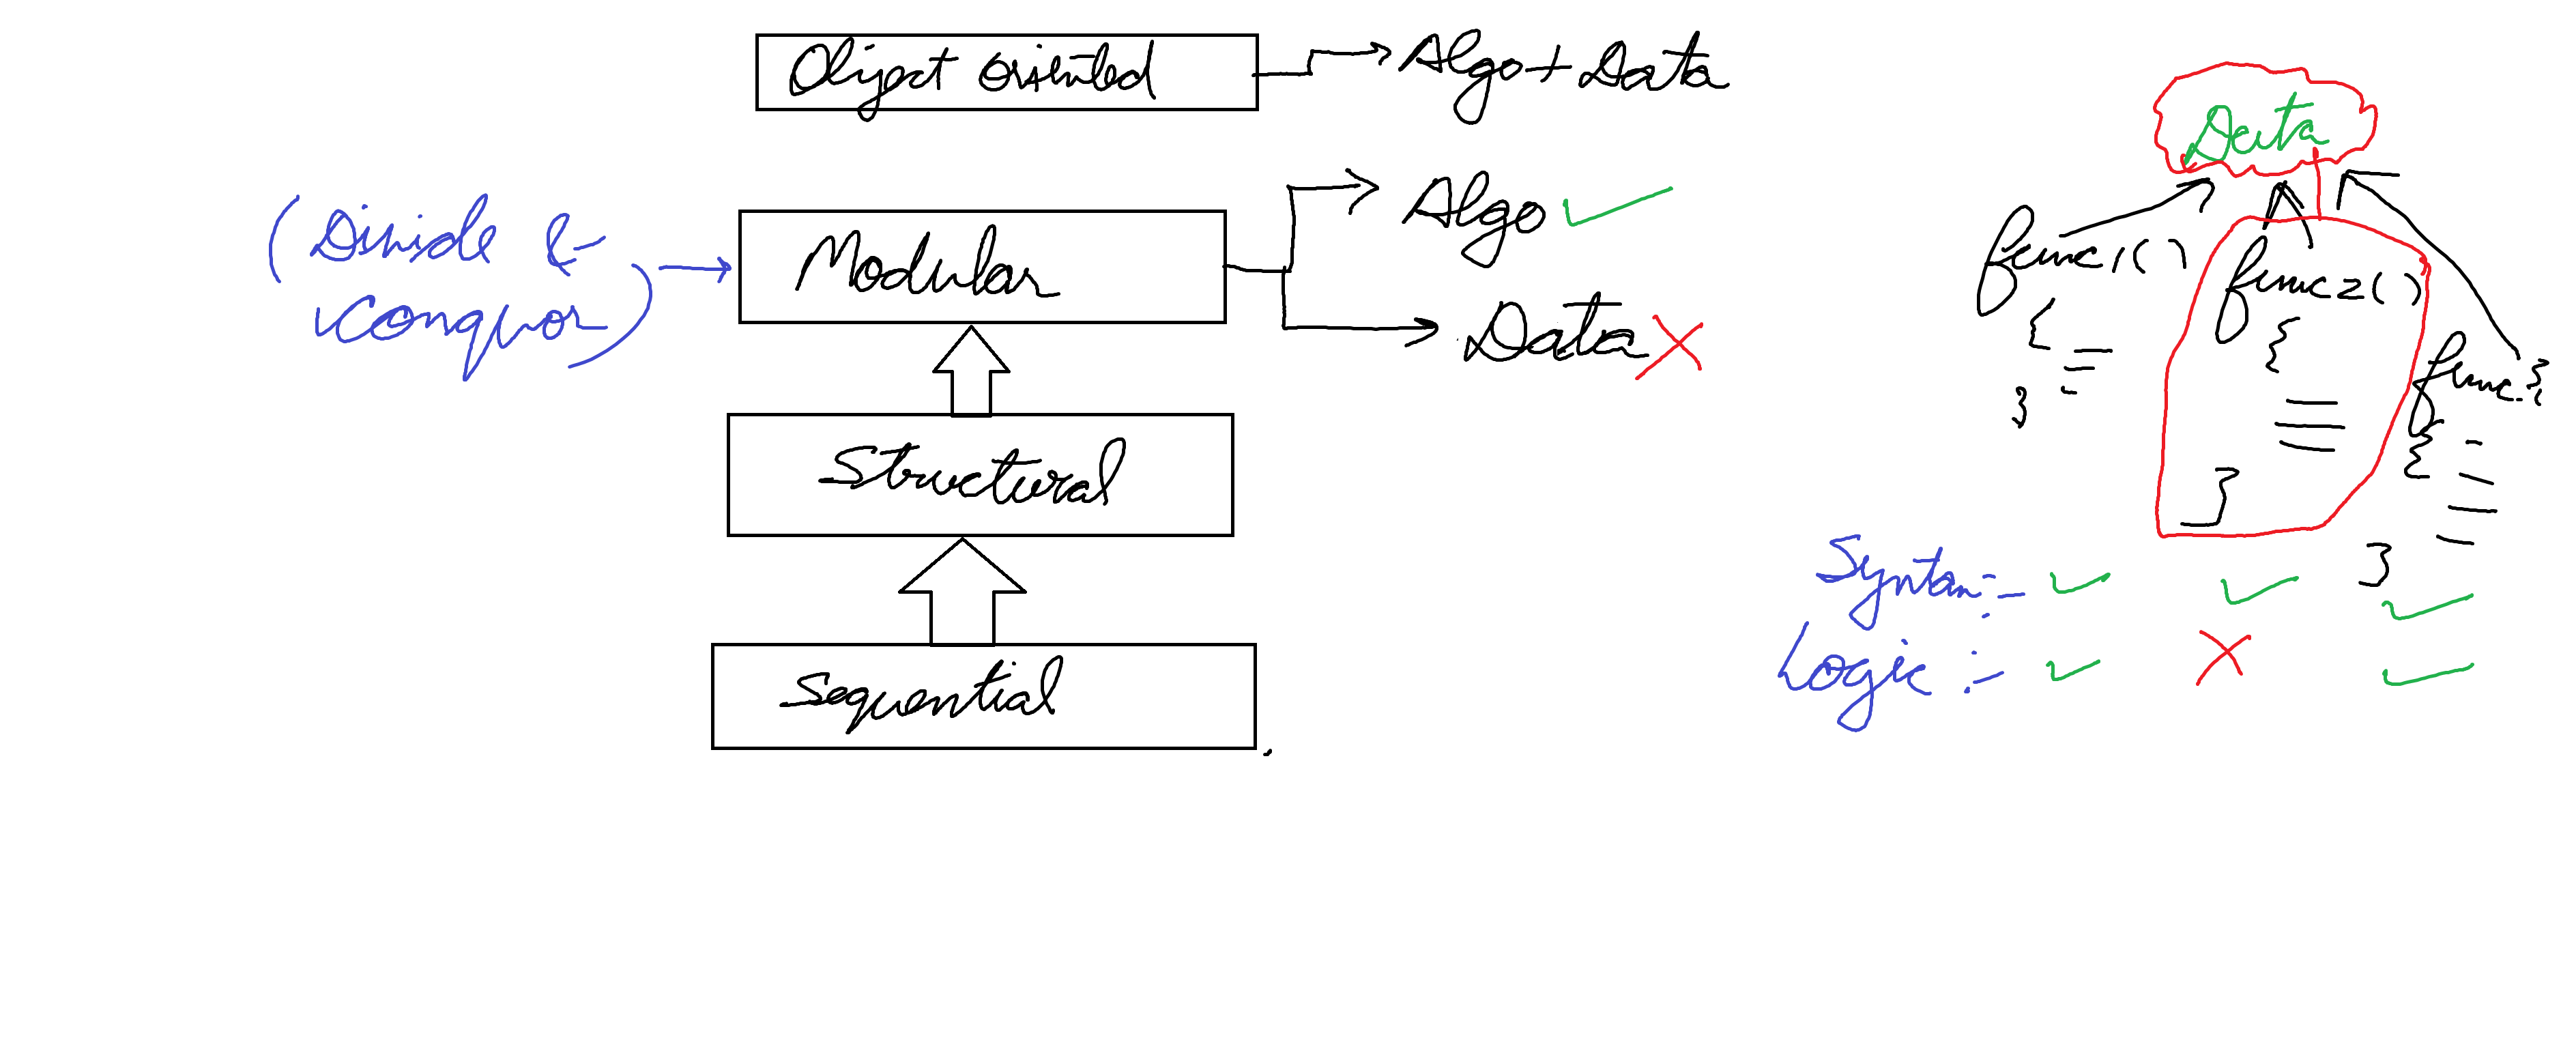 Object Oriented
Algo + Data
(Divide &
Conquor)
Modular
Algo
Data
Structural
Sequential
Data
func1()
{
}
func2()
{
}
func3
{
}
Syntax:-
Logic :-